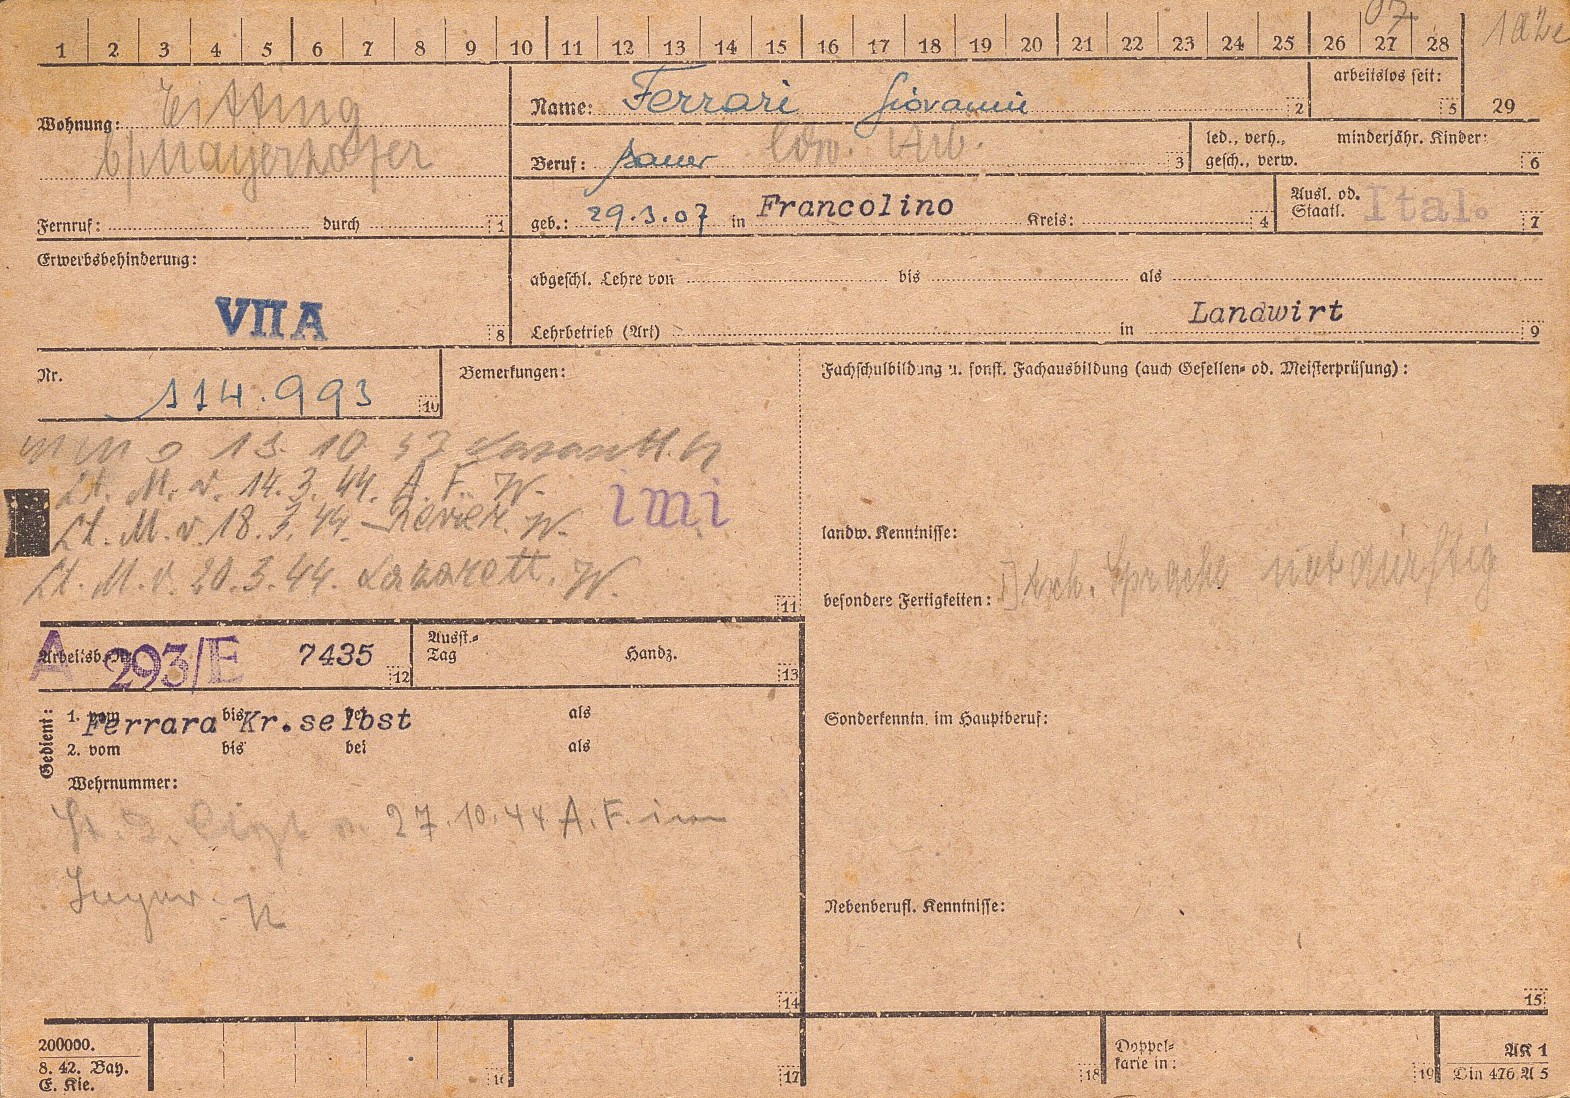 1 2 3 4 5 6 7 8 9 10 11 12 13 14 15 16 17 18 19 20 21 22 23 24 25 26 27 28
07
29
arbeitslos seit:
5
Wohnung: Eitting
b/Mayerhofer
Fernruf: durch 1
Name: Ferrari Giovanni 2
Beruf: Bauer Ldw. Arb. 3
led., verh., minderjähr. Kinder:
gesch., verw. 6
geb.: 29.3.07 in Francolino Kreis: 4
Ausl. od.
Staatl. Ital. 7
Erwerbsbehinderung:
VII A
8
abgeschl. Lehre von bis als
Lehrbetrieb (Art) in Landwirt 9
Nr. 114.993 10
Bemerkungen:
13. 10. 43 Lazarett
Lt. M. v. 14.3.44. A. F. W.
imi
Lt. M. v. 18.3.44. Revier. W.
Lt. M. v. 20.3.44. Lazarett. W.
11
Fachschulbildung u. sonst. Fachausbildung (auch Gesellen- od. Meisterprüfung):
landw. Kenntnisse:
besondere Fertigkeiten: Dtsch. Sprache notdürftig
Sonderkenntn. im Hauptberuf:
Nebenberufl. Kenntnisse:
15
Arbeitsb.-Nr. A 293/E 7435 12
Ausst.-
Tag Handz. 13
Gedient:
1. vom bis bei als
Ferrara Kr.selbst
2. vom bis bei als
Wehrnummer:
27.10.44 A.F. im
14
200000.
8. 42. Bay.
E. Kie.
16
17
18
Doppel-
karte in: 19
AK 1
Din 476 A 5